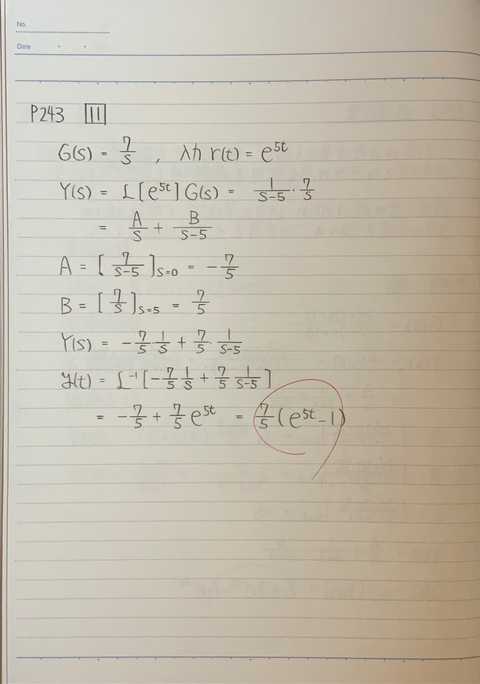 No.
Date
P243 11
G(s) = 7/s , 入力 r(t) = e^{5t}
Y(s) = L[e^{5t}]G(s) = 1/(s-5) · 7/s
= A/s + B/(s-5)
A = [7/(s-5)]_{s=0} = -7/5
B = [7/s]_{s=5} = 7/5
Y(s) = -7/5 1/s + 7/5 1/(s-5)
y(t) = L^{-1}[-7/5 1/s + 7/5 1/(s-5)]
= -7/5 + 7/5 e^{5t} = 7/5 (e^{5t} - 1)